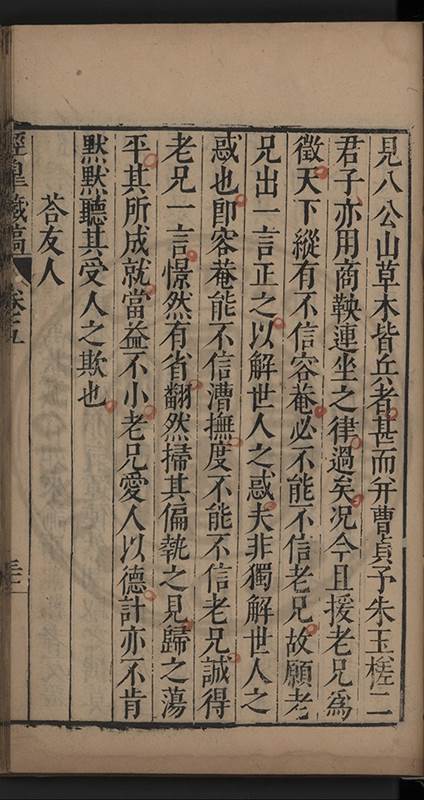 見八公山草木皆兵者甚而并曹貞予朱玉槎二
君子亦用商鞅連坐之律過矣况今且援老兄爲
徵天下縱有不信容菴必不能不信老兄故願老
兄出一言正之以解世人之惑夫非獨解世人之
惑也卽容菴能不信漕撫度不能不信老兄誠得
老兄一言憬然有省翻然掃其偏執之見歸之蕩
平其所成就當益不小老兄愛人以德計亦不肯
默默聽其受人之欺也
荅友人
涇皐藏稿 卷之五